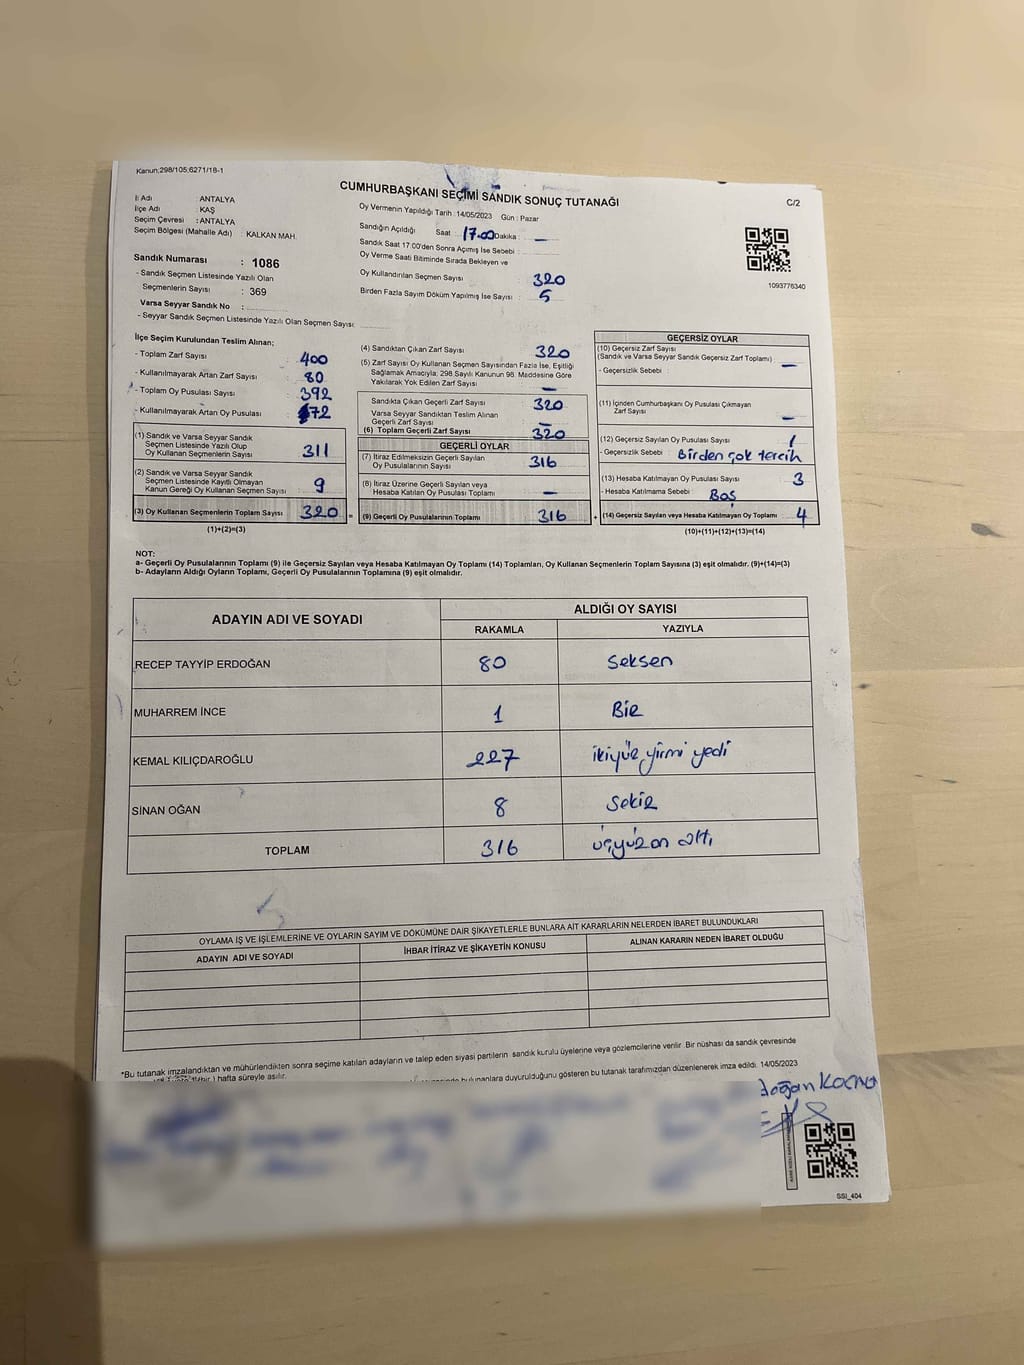 Kanun:298/105;6271/18-1
CUMHURBAŞKANI SEÇİMİ SANDIK SONUÇ TUTANAĞI
C/2
İl Adı ANTALYA
İlçe Adı KAŞ
Seçim Çevresi : ANTALYA
Seçim Bölgesi (Mahalle Adı) : KALKAN MAH.
Sandık Numarası : 1086
- Sandık Seçmen Listesinde Yazılı Olan
Seçmenlerin Sayısı : 369
Varsa Seyyar Sandık No :
- Seyyar Sandık Seçmen Listesinde Yazılı Olan Seçmen Sayısı:
Oy Vermenin Yapıldığı Tarih :14/05/2023 Gün : Pazar
Sandığın Açıldığı Saat : 17.00 Dakika : —
Sandık Saat 17:00'den Sonra Açımış İse Sebebi :
Oy Verme Saati Bitiminde Sırada Bekleyen ve
Oy Kullandırılan Seçmen Sayısı 320
Birden Fazla Sayım Döküm Yapılmış İse Sayısı : 5
1093776340
İlçe Seçim Kurulundan Teslim Alınan;
- Toplam Zarf Sayısı 400
- Kullanılmayarak Artan Zarf Sayısı 80
- Toplam Oy Pusulası Sayısı 392
- Kullanılmayarak Artan Oy Pusulası 72
(1) Sandık ve Varsa Seyyar Sandık
Seçmen Listesinde Yazılı Olup
Oy Kullanan Seçmenlerin Sayısı 311
(2) Sandık ve Varsa Seyyar Sandık
Seçmen Listesinde Kayıtlı Olmayan
Kanun Gereği Oy Kullanan Seçmen Sayısı 9
(3) Oy Kullanan Seçmenlerin Toplam Sayısı 320 =
(1)+(2)=(3)
(4) Sandıktan Çıkan Zarf Sayısı 320
(5) Zarf Sayısı Oy Kullanan Seçmen Sayısından Fazla İse, Eşitliği
Sağlamak Amacıyla; 298 Sayılı Kanunun 98. Maddesine Göre
Yakılarak Yok Edilen Zarf Sayısı —
Sandıkta Çıkan Geçerli Zarf Sayısı 320
Varsa Seyyar Sandıktan Teslim Alınan
Geçerli Zarf Sayısı —
(6) Toplam Geçerli Zarf Sayısı 320
GEÇERLİ OYLAR
(7) İtiraz Edilmeksizin Geçerli Sayılan
Oy Pusulalarının Sayısı 316
(8) İtiraz Üzerine Geçerli Sayılan veya
Hesaba Katılan Oy Pusulası Toplamı —
(9) Geçerli Oy Pusulalarının Toplamı 316 +
GEÇERSİZ OYLAR
(10) Geçersiz Zarf Sayısı
(Sandık ve Varsa Seyyar Sandık Geçersiz Zarf Toplamı) —
- Geçersizlik Sebebi :
(11) İçinden Cumhurbaşkanı Oy Pusulası Çıkmayan
Zarf Sayısı —
(12) Geçersiz Sayılan Oy Pusulası Sayısı 1
- Geçersizlik Sebebi : Birden çok tercih
(13) Hesaba Katılmayan Oy Pusulası Sayısı 3
- Hesaba Katılmama Sebebi : Boş
(14) Geçersiz Sayılan veya Hesaba Katılmayan Oy Toplamı 4
(10)+(11)+(12)+(13)=(14)
NOT:
a- Geçerli Oy Pusulalarının Toplamı (9) ile Geçersiz Sayılan veya Hesaba Katılmayan Oy Toplamı (14) Toplamları, Oy Kullanan Seçmenlerin Toplam Sayısına (3) eşit olmalıdır. (9)+(14)=(3)
b- Adayların Aldığı Oyların Toplamı, Geçerli Oy Pusulalarının Toplamına (9) eşit olmalıdır.
ADAYIN ADI VE SOYADI ALDIĞI OY SAYISI
RAKAMLA YAZIYLA
RECEP TAYYİP ERDOĞAN 80 Seksen
MUHARREM İNCE 1 Bir
KEMAL KILIÇDAROĞLU 227 ikiyüz yirmi yedi
SİNAN OĞAN 8 Sekiz
TOPLAM 316 üçyüz on altı
OYLAMA İŞ VE İŞLEMLERİNE VE OYLARIN SAYIM VE DÖKÜMÜNE DAİR ŞİKAYETLERLE BUNLARA AİT KARARLARIN NELERDEN İBARET BULUNDUKLARI
ADAYIN ADI VE SOYADI İHBAR İTİRAZ VE ŞİKAYETİN KONUSU ALINAN KARARIN NEDEN İBARET OLDUĞU
*Bu tutanak imzalandıktan ve mühürlendikten sonra seçime katılan adayların ve talep eden siyasi partilerin sandık kurulu üyelerine veya gözlemcilerine verilir. Bir nüshası da sandık çevresinde
hafta süreyle asılır.
duyurulduğunu gösteren bu tutanak tarafımızdan düzenlenerek imza edildi. 14/05/2023
SSI_404